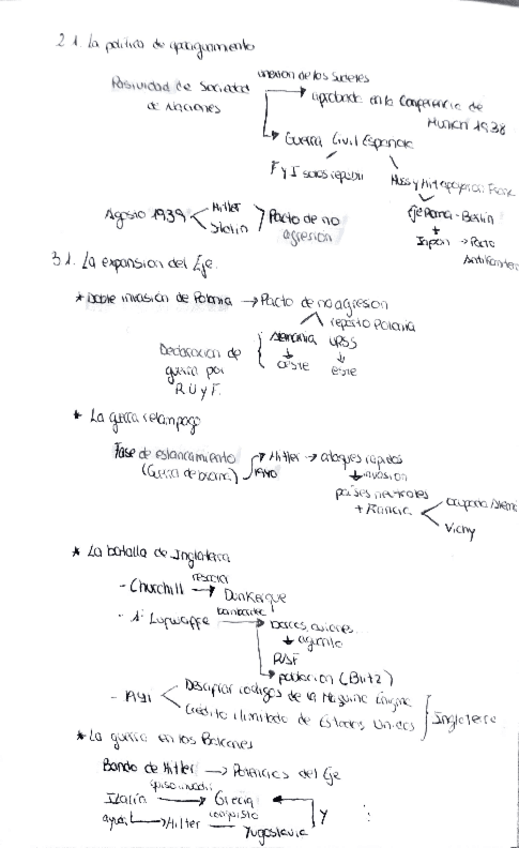 2.1. La política de apaciguamiento
Pasividad de Sociedad de Naciones
anexion de los Sudetes
aprobada en la Conferencia de Munich 1938
Guerra Civil Española
F y I solos republi
Muss y Hit apoyaron a Franc
Eje Roma-Berlín
+
Japon → Pacto Antikomter
Agosto 1939
Hitler
Stalin
Pacto de no agresion
3.1. La expansion del Eje.
* Doble invasión de Polonia → Pacto de no agresion
reparto Polonia
Alemania URSS
oeste este
Declaracion de guerra por R.U y F.
* La guerra relampago
Fase de estancamiento
(Guerra de broma)
1940
Hitler → ataques rapidos
invasion
países neutrales
+ Francia
ocupada Alema
Vichy
* La batalla de Inglaterra
- Churchill
Dunkerque
- 1º
bombardea
barcos, aviones...
población (Blitz)
- Ayu
Descifrar codigos de la Maquina Enigma
Crédito ilimitado de Estados Unidos
Inglaterra
* La guerra en los Balcanes
Bando de Hitler → Potencias del Eje
Italia
Grecia
quiso invadir
ayuda
Hitler
conquisto
Yugoslavia
Y